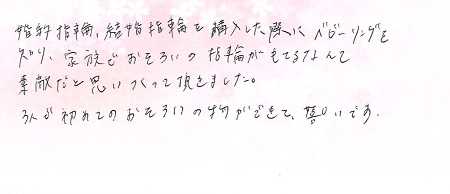 婚約指輪、結婚指輪を購入した際に ベビーリングを
知り、家族でおそろいの指輪がもてるなんて
素敵だと思いつくって頂きました。
3人で初めてのおそろいの物ができて、嬉しいです.